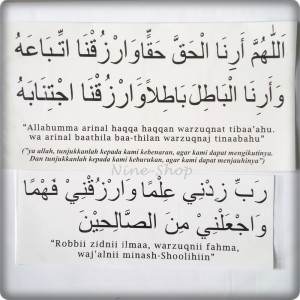 اَللّٰهُمَّ أَرِنَا الْحَقَّ حَقًّا وَارْزُقْنَا اتِّبَاعَهُ
وَأَرِنَا الْبَاطِلَ بَاطِلاً وَارْزُقْنَا اجْتِنَابَهُ
"Allahumma arinal haqqa haqqan warzuqnat tibaa'ahu.
wa arinal baathila baa-thilan warzuqnaj tinaabahu"
("ya allah, tunjukkanlah kepada kami kebenaran, agar kami dapat mengikutinya.
Dan tunjukkanlah kepada kami keburukan, agar kami dapat menjauhinya")
Nine-Shop
رَبِّ زِدْنِيْ عِلْمًا وَارْزُقْنِيْ فَهْمًا
وَاجْعَلْنِيْ مِنَ الصَّالِحِيْنَ
"Robbii zidnii ilmaa, warzuqnii fahma,
waj'alnii minash-Shoolihiin"